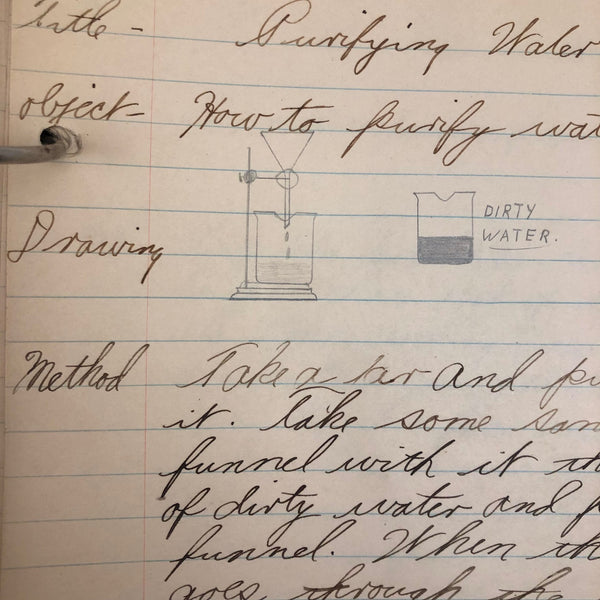 Title - Purifying Water
object - How to purify wat
DIRTY
WATER.
Drawing
Method Take a jar and pu
it. Take some san
funnel with it th
of dirty water and p
funnel. When th
goes through the